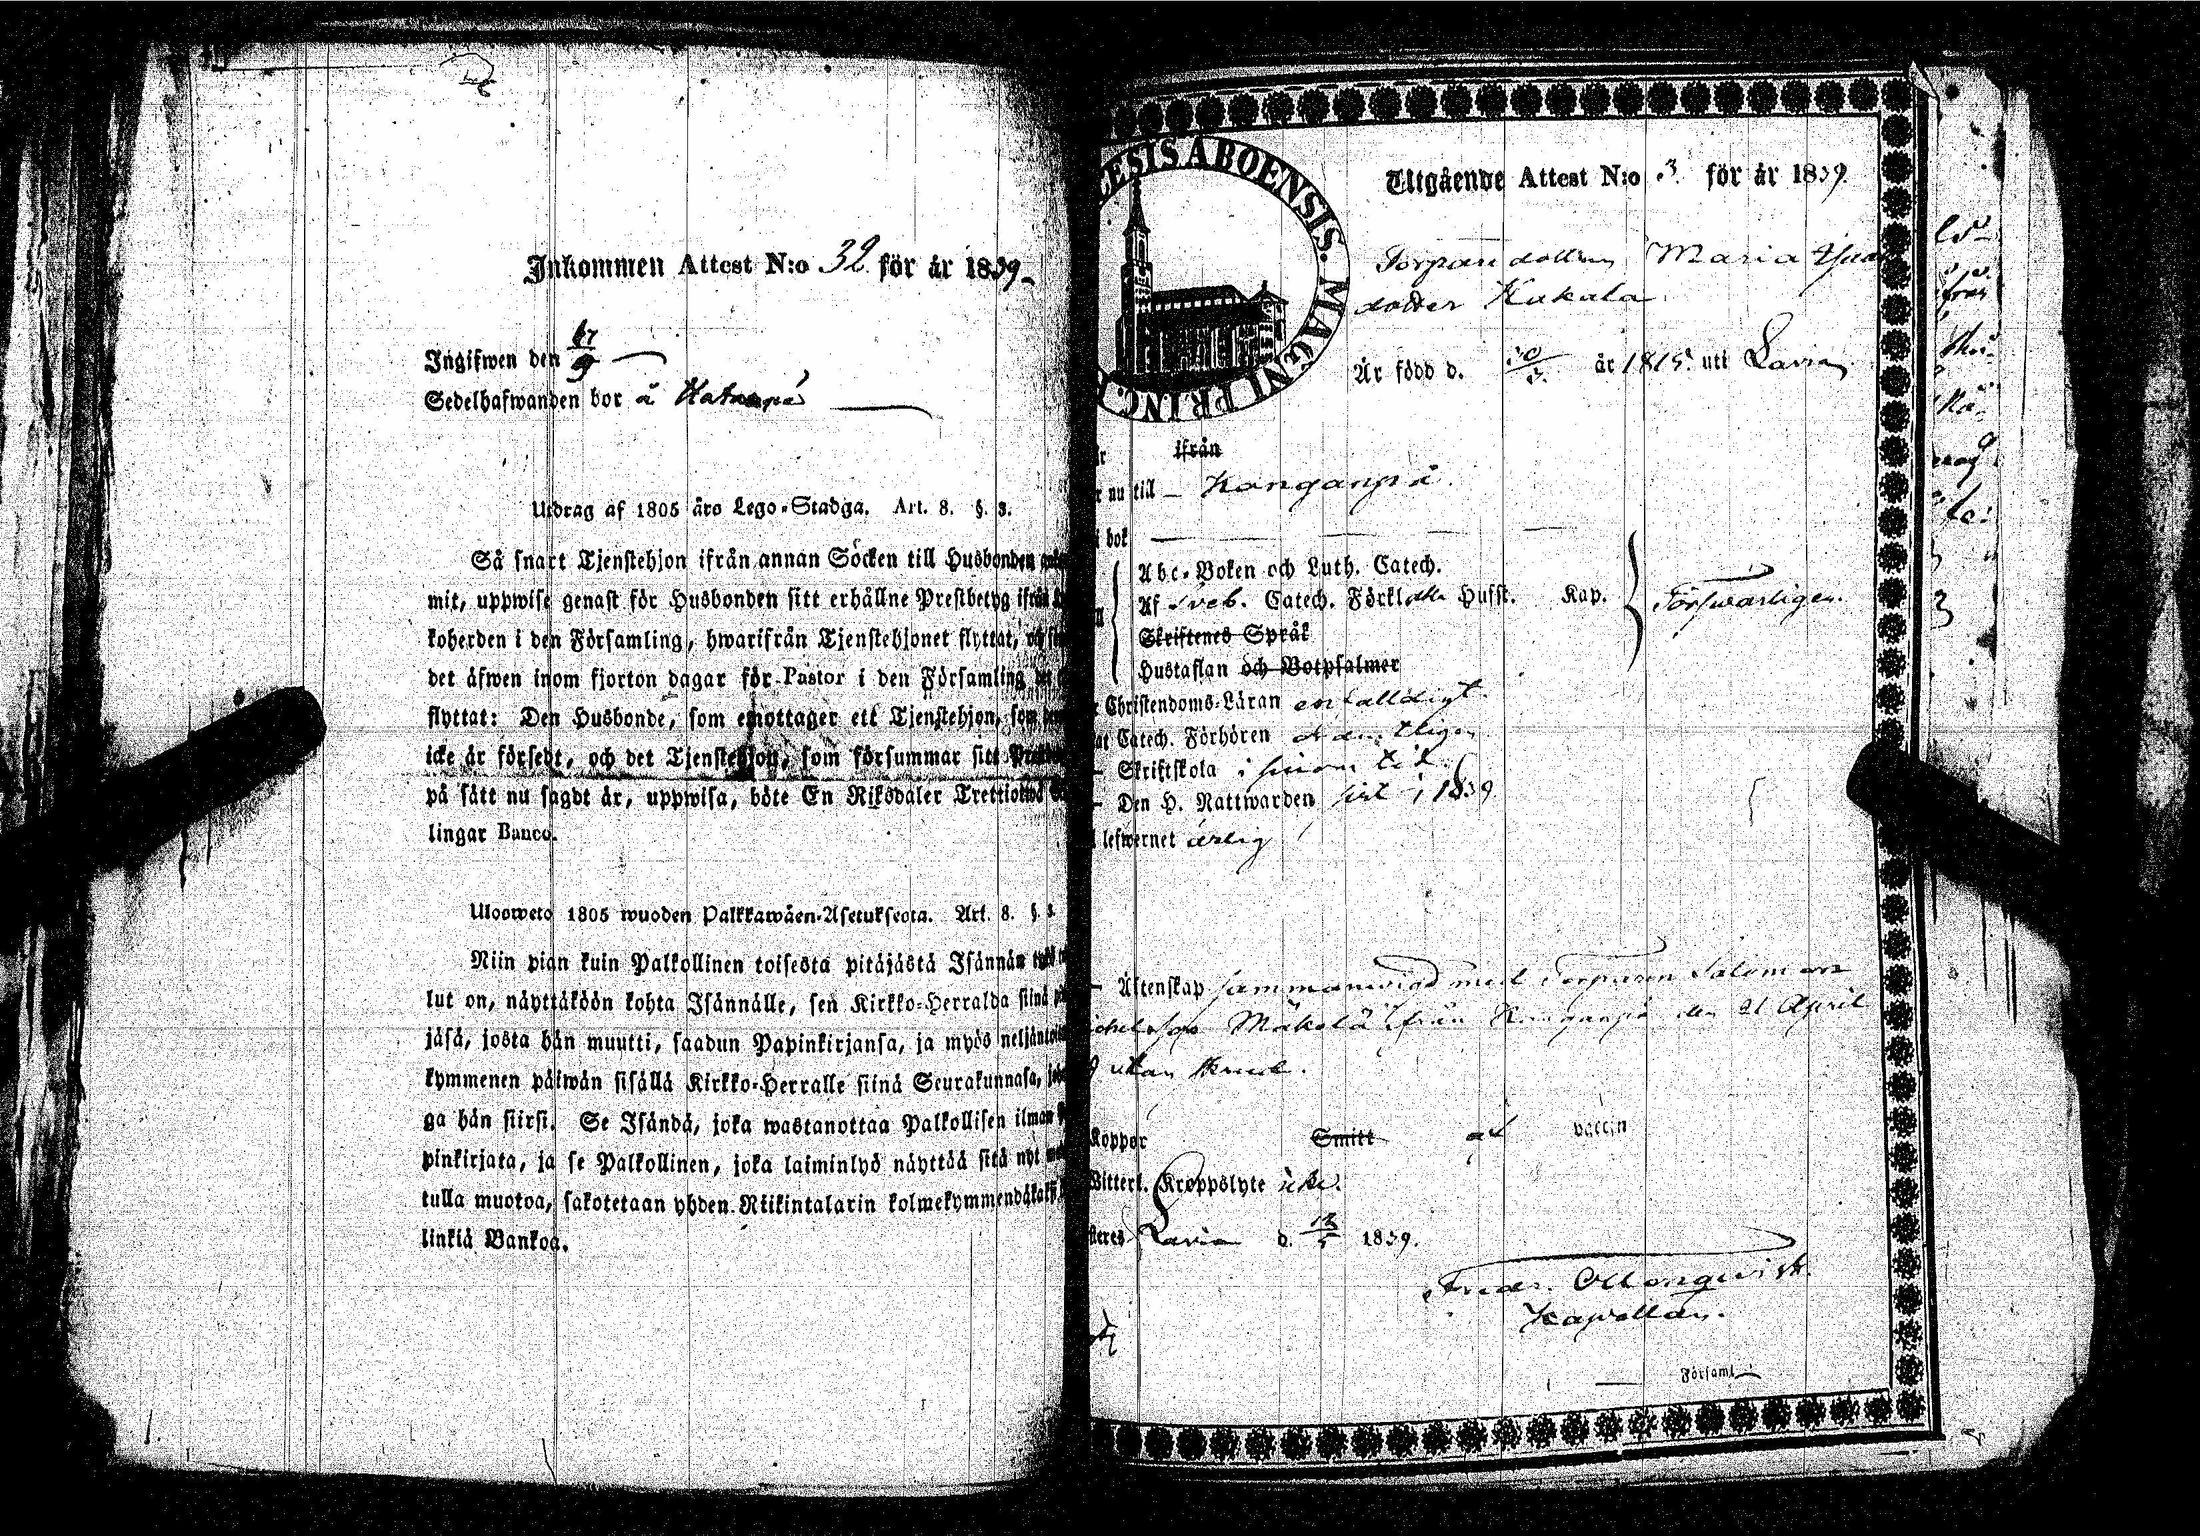 Inkommen Attest N:o 32 för år 1839
Ingifwen den 17/9
Sedelhafwanden bor å
Utdrag af 1805 års Lego-Stadga. Art. 8. §. 3.
Så snart Tjenstehjon ifrån annan Söcken till Husbonden
mit, uppwise genast för Husbonden sitt erhållne Prestbetyg ifrån
koherden i den Församling, hwarifrån Tjenstehjonet flyttat,
det äfwen inom fjorton dagar för Pastor i den Församling
flyttat: Den Husbonde, som emottager ett Tjenstehjon, som
icke är försedt, och det Tjenstehjon, som försummar sitt
på sätt nu sagdt är, uppwisa, böte En Riksdaler Trettiotwå
lingar Banco.
Ulosweto 1805 wuoden Palkkawäen-Asetuksesta. Art. 8. §. 3.
Niin pian kuin Palkollinen toisesta pitäjästä Isännän
lut on, näyttäköön kohta Isännälle, sen Kirkko-Herralda siinä
jäsä, josta hän muutti, saadun Papinkirjansa, ja myös
kymmenen päiwän sisällä Kirkko-Herralle siinä Seurakunnasa,
ga hän siirsi. Se Isändä, joka wastanottaa Palkollisen ilman
pinkirjata, ja se Palkollinen, joka laiminlyö näyttää sitä nyt
tulla muotoa, sakotetaan yhden Riikintalarin
linkiä Bankoa.
ESIS ABOENSIS. MAGNI PRINC.
Utgående Attest N:o 3 för år 1839
Torpare dottren Maria
dotter Kukala
Är född d. år 1815 uti Lavia
ifrån
nu till Kanganpä
i bok
Abc-Boken och Luth. Catech.
Af Sveb. Catech. Förkl. Hufst. Kap. Försvarligen.
Skriftenes Språk
Hustaflan och Botpsalmer
Christendoms-Läran enfalldigt
Catech. Förhören ordentligen
Skriftskola i sinom tid
Den H. Nattwarden sist i 1839
lefwernet ärlig
Äktenskap sammanvigd med Torparen Salomon
Mäkelä ifrån Kanganpä den 21 April
utan
Koppor Smitt af vaccin
Witterl. Kroppslyte icke.
Lavia d. 12/5 1839.
Fredr.
Kapellan.
Församl.